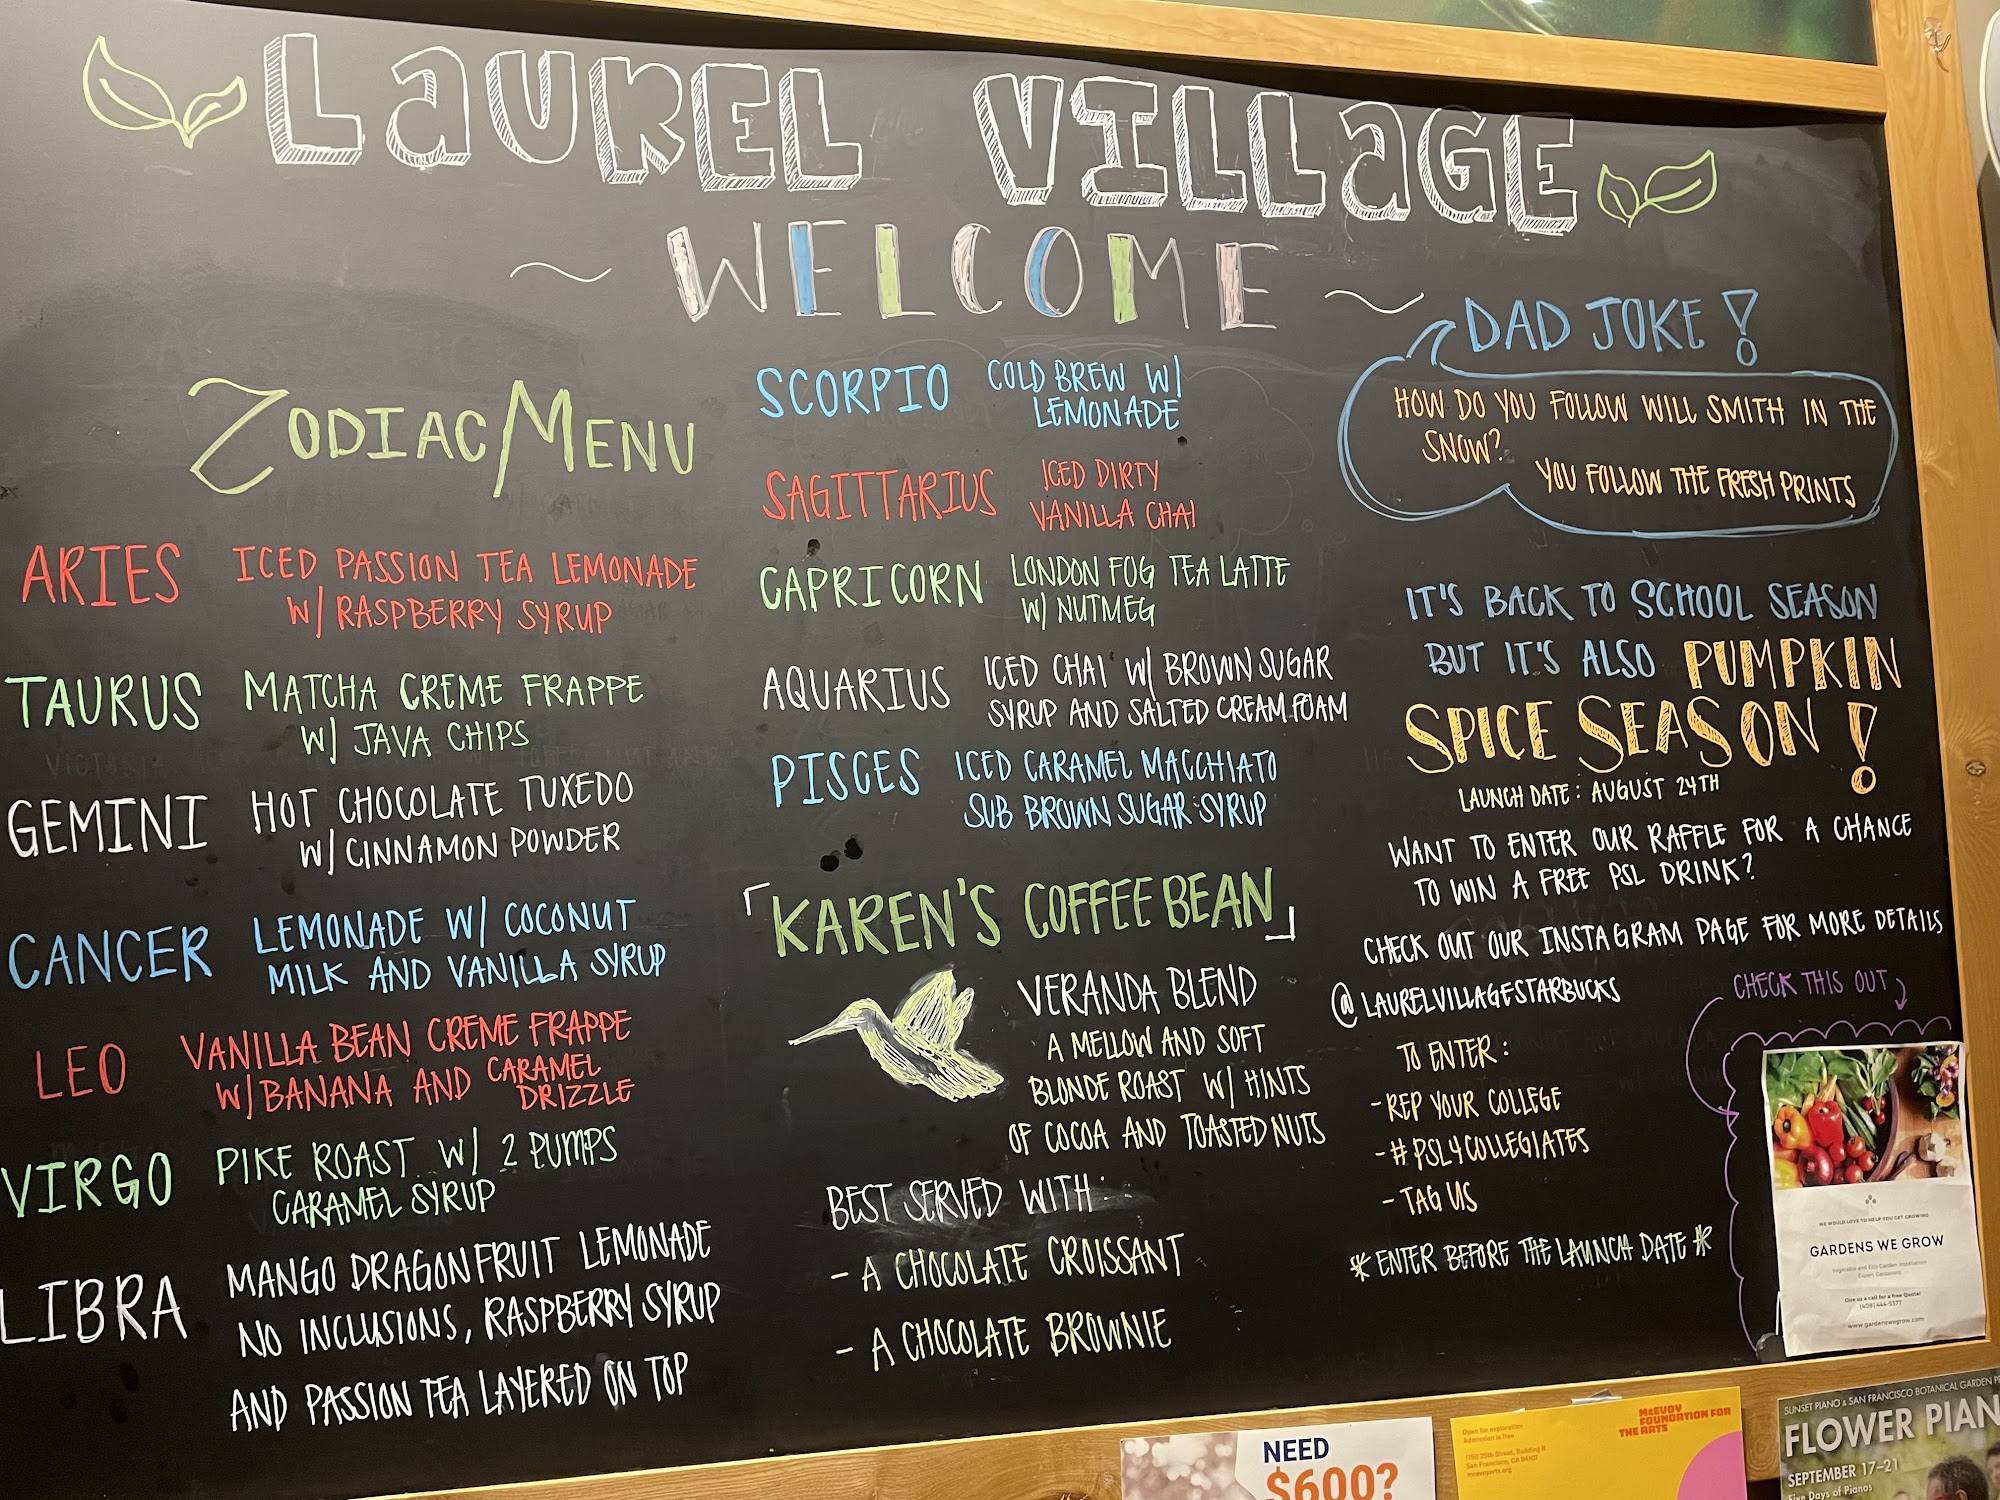 LAUREL VILLAGE
~ WELCOME ~
ZODIAC/MENU
ARIES ICED PASSION TEA LEMONADE
W/ RASPBERRY SYRUP
TAURUS MATCHA CREME FRAPPE
W/ JAVA CHIPS
GEMINI HOT CHOCOLATE TUXEDO
W/ CINNAMON POWDER
CANCER LEMONADE W/ COCONUT
MILK AND VANILLA SYRUP
LEO VANILLA BEAN CREME FRAPPE
W/ BANANA AND CARAMEL
DRIZZLE
VIRGO PIKE ROAST W/ 2 PUMPS
CARAMEL SYRUP
LIBRA MANGO DRAGONFRUIT LEMONADE
NO INCLUSIONS, RASPBERRY SYRUP
AND PASSION TEA LAYERED ON TOP
SCORPIO COLD BREW W/
LEMONADE
SAGITTARIUS ICED DIRTY
VANILLA CHAI
CAPRICORN LONDON FOG TEA LATTE
W/ NUTMEG
AQUARIUS ICED CHAI W/ BROWN SUGAR
SYRUP AND SALTED CREAM FOAM
PISCES ICED CARAMEL MACCHIATO
SUB BROWN SUGAR SYRUP
「KAREN'S COFFEE BEAN」
VERANDA BLEND
A MELLOW AND SOFT
BLONDE ROAST W/ HINTS
OF COCOA AND TOASTED NUTS
BEST SERVED WITH:
- A CHOCOLATE CROISSANT
- A CHOCOLATE BROWNIE
DAD JOKE!
HOW DO YOU FOLLOW WILL SMITH IN THE
SNOW?
YOU FOLLOW THE FRESH PRINTS
IT'S BACK TO SCHOOL SEASON
BUT IT'S ALSO PUMPKIN
SPICE SEASON!
LAUNCH DATE: AUGUST 24TH
WANT TO ENTER OUR RAFFLE FOR A CHANCE
TO WIN A FREE PSL DRINK?
CHECK OUT OUR INSTAGRAM PAGE FOR MORE DETAILS
@LAURELVILLAGESTARBUCKS
CHECK THIS OUT
TO ENTER:
- REP YOUR COLLEGE
- #PSL4COLLEGIATES
- TAG US
* ENTER BEFORE THE LAUNCH DATE *
WE WOULD LOVE TO HELP YOU GET GROWING
GARDENS WE GROW
Vegetable and Eco Garden Installation
Expert Gardeners
Give us a call for a free Quote!
(408) 444-5377
www.gardenswegrow.com
NEED
$600?
Open for exploration
Admission is free
1150 25th Street, Building B
San Francisco, CA 94107
mcevoyarts.org
McEVOY
FOUNDATION FOR
THE ARTS
SUNSET PIANO & SAN FRANCISCO BOTANICAL GARDEN
FLOWER PIAN
SEPTEMBER 17-21
Five Days of Pianos